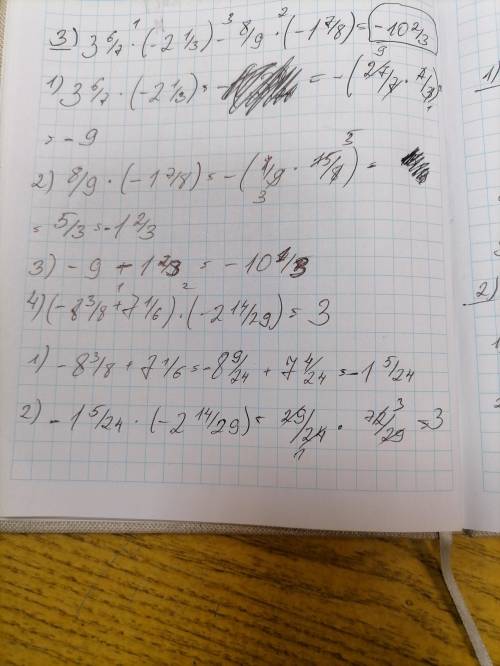 3) 3 6/7 · (-2 1/3) - 8/9 · (-1 7/8) = -10 2/3
1) 3 6/7 · (-2 1/3) = = -(27/7 · 7/3)
= -9
2) 8/9 · (-1 7/8) = -(8/9 · 15/8) =
= 5/3 = -1 2/3
3) -9 - 1 2/3 = -10 2/3
4) (-8 3/8 + 7 1/6) · (-2 14/29) = 3
1) -8 3/8 + 7 1/6 = -8 9/24 + 7 4/24 = -1 5/24
2) -1 5/24 · (-2 14/29) = 29/24 · 72/29 = 3
1)
2)